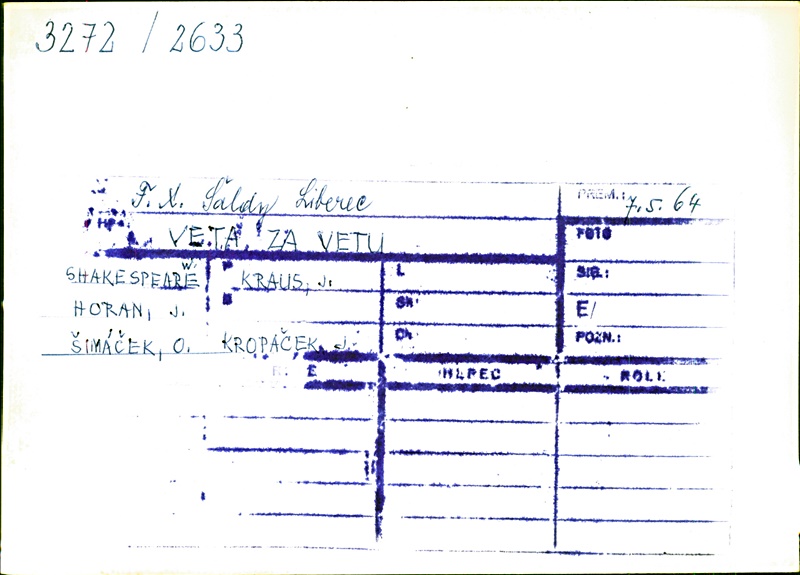 3272 / 2633
F. X. Šaldy Liberec PREM.: 7.5.64
VETA ZA VETU FOTO
SHAKESPEARE W KRAUS, J. L
HORAN, J. E/
ŠIMÁČEK, O. KROPÁČEK, J. POZN.:
HEREC ROLE